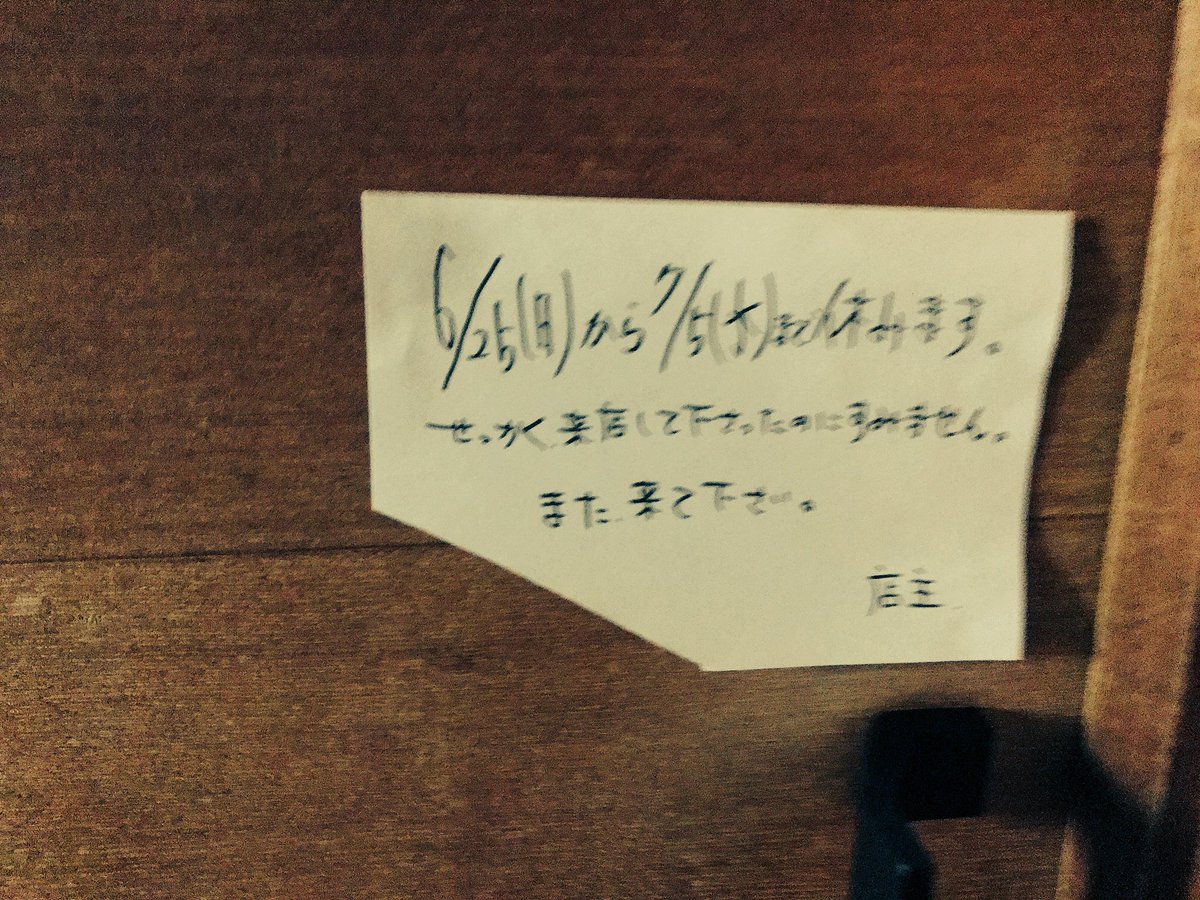 6/25(月)から7/5(木)まで休みます。
せっかく来店して下さったのにすみません。
また来て下さい。
店主